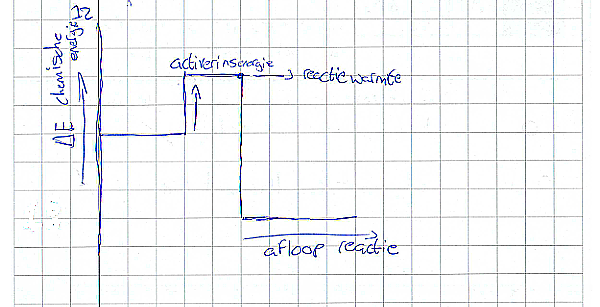 12
ΔE chemische
energie
activerinsenergie
reactiewarmte
afloop reactie